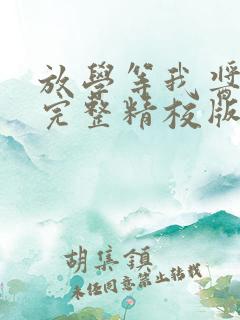 放學等我 醬
完整精校版
胡集鎮
未經同意禁止轉載